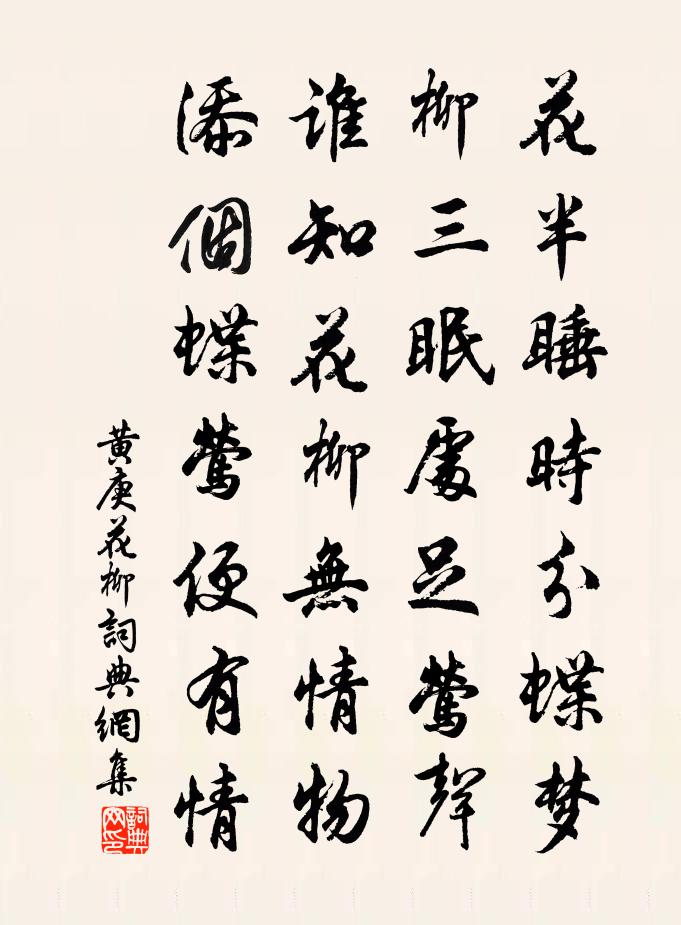 花半睡時分蝶梦
柳三眠處足鶯聲
誰知花柳無情物
添個蝶鶯便有情
黄庚花柳詞典網集
詞典网印